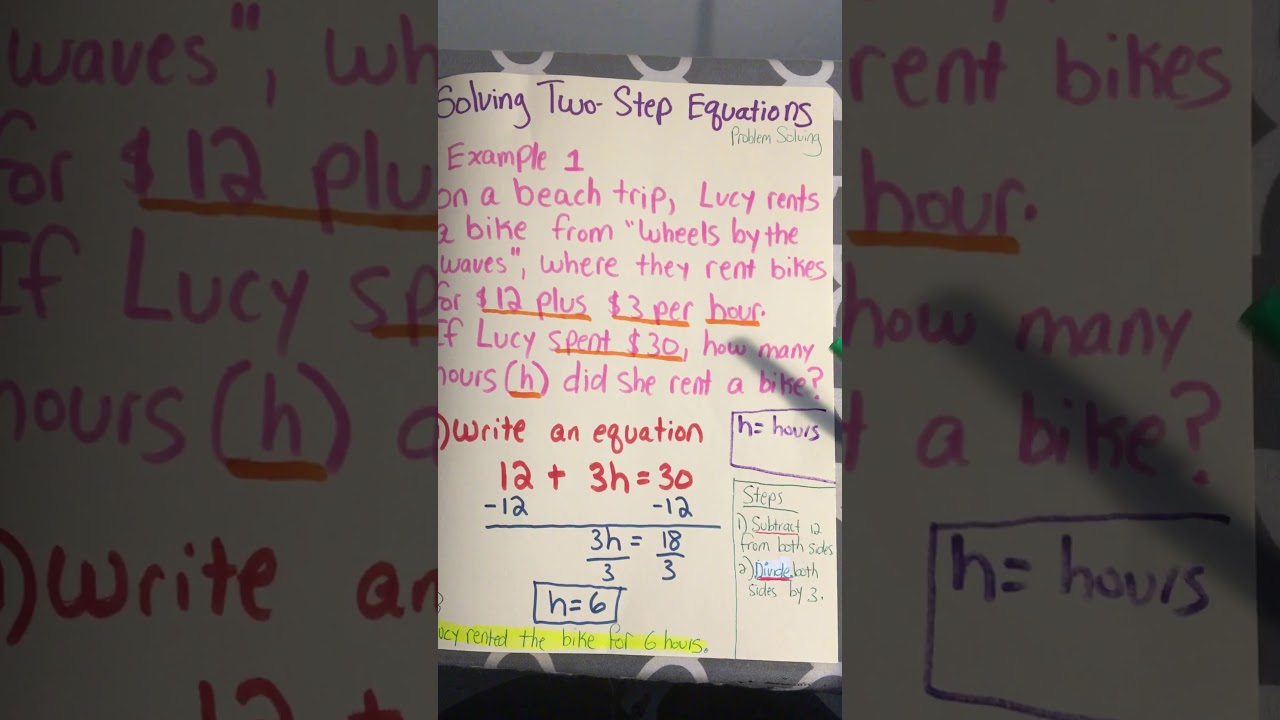 Solving Two-Step Equations
Problem Solving
Example 1
on a beach trip, Lucy rents
a bike from "Wheels by the
waves", where they rent bikes
for $12 plus $3 per hour.
If Lucy spent $30, how many
hours (h) did she rent a bike?
1) Write an equation
h = hours
12 + 3h = 30
-12 -12
3h = 18
3 3
h = 6
Lucy rented the bike for 6 hours.
Steps
1) Subtract 12
from both sides
2) Divide both
sides by 3.
waves", wh
for $12 plu
If Lucy sp
hours (h) d
1) Write an
12 +
rent bikes
hour.
how many
a bike?
h = hours